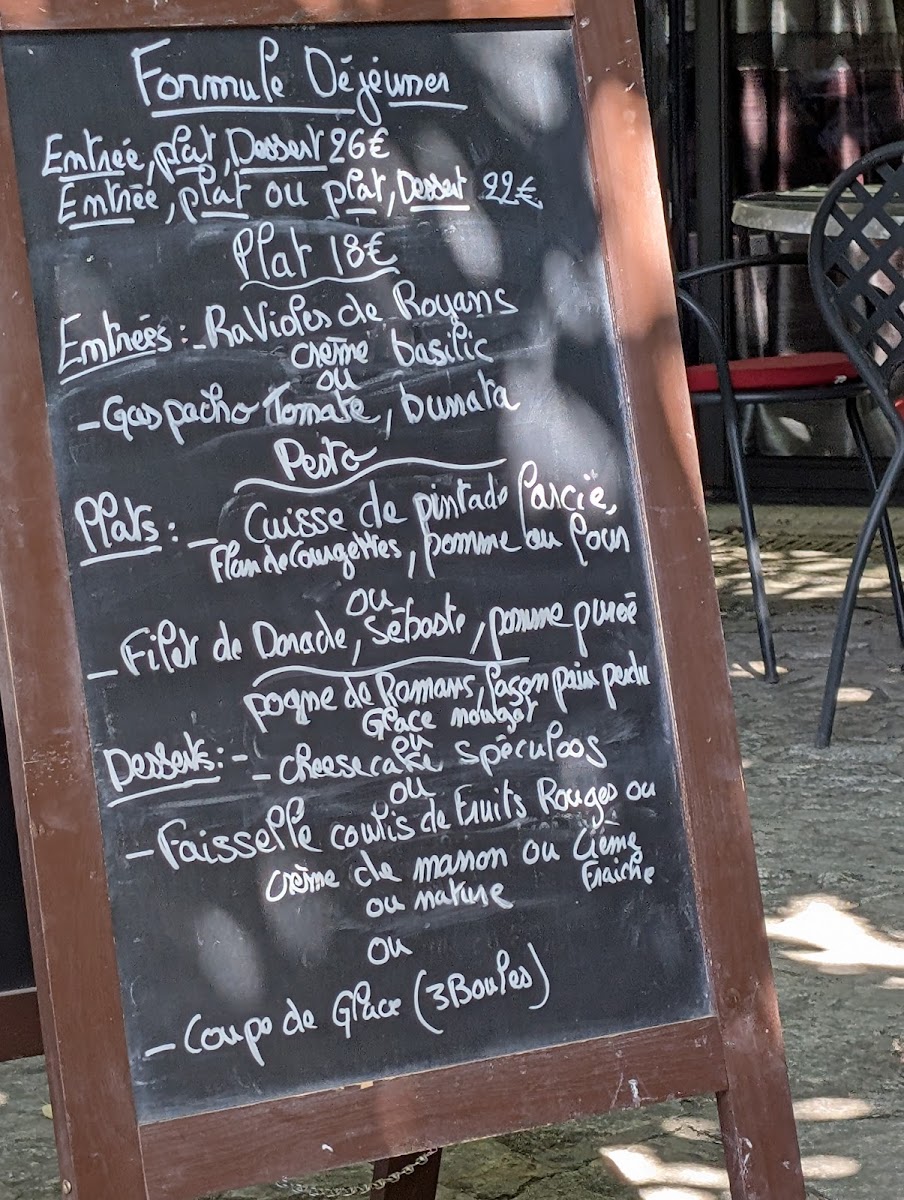 Formule Déjeuner
Entrée, plat, Dessert 26€
Entrée, plat ou plat, Dessert 22€
Plat 18€
Entrées : - Ravioles de Royans
crème basilic
ou
- Gaspacho Tomate, burrata
Pesto
Plats : - Cuisse de pintade farcie,
Flan de Courgettes, pomme au four
ou
- Filet de Dorade, Sébaste, pomme purée
pogne de Romans, façon pain perdu
Glace nougat
Desserts : - ou
- cheesecake spéculoos
ou
- Faisselle coulis de Fruits Rouges ou
crème de marron ou Crème
Fraiche
ou nature
ou
- Coupe de Glace (3 Boules)